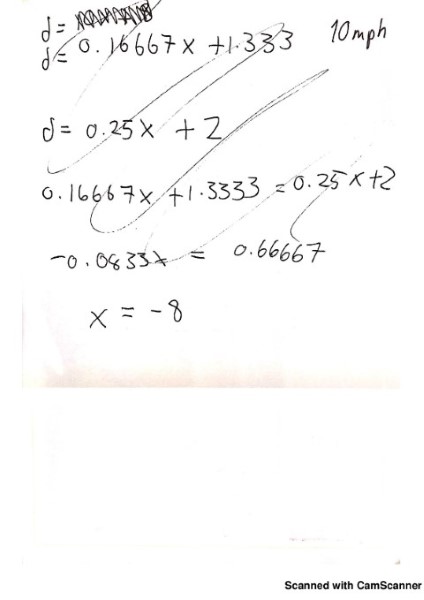 d=
d= 0.16667x +1.333 10mph
d= 0.25x + 2
0.16667x +1.3333 = 0.25x+2
-0.0833x = 0.66667
x = -8
Scanned with CamScanner